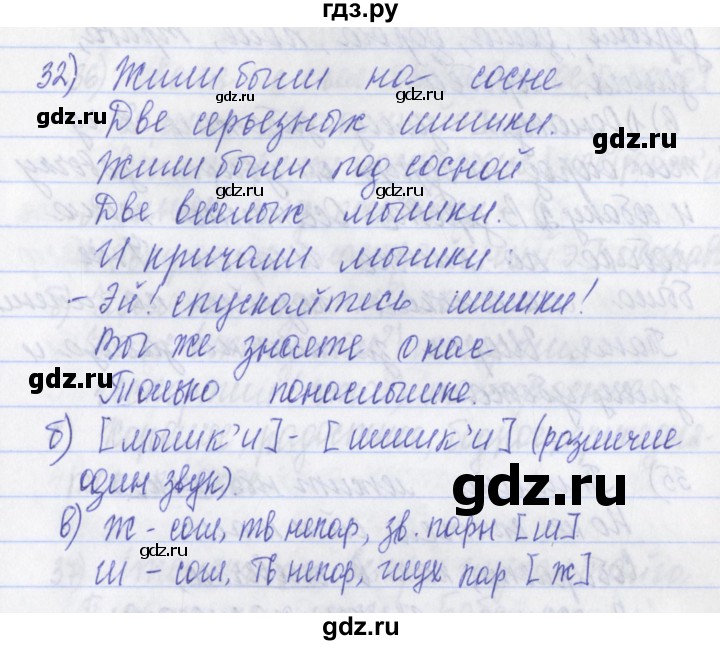 гдз.ру
32) Жили были на сосне
Две серьезных шишки.
Жили были под сосной
Две веселых мышки.
И кричали мышки:
- Эй! спускайтесь шишки!
Вы же знаете о нас
Только понаслышке.
б) [мышк'и] - [шишк'и] (различие
один звук).
в) Ж - согл, тв непар, зв. парн [ш]
ш - согл, Тв непар, глух пар [ж]
gdz.ru
gdz.ru
gdz.ru
gdz.ru
gdz.ru
gdz.ru
gdz.ru
gdz.ru
gdz.ru
gdz.ru
gdz.ru
gdz.ru
gdz.ru